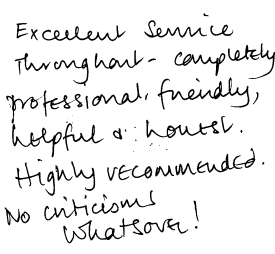 Excellent Service
Throughout - completely
professional, friendly,
helpful & honest.
Highly recommended.
No criticisms
whatsover!